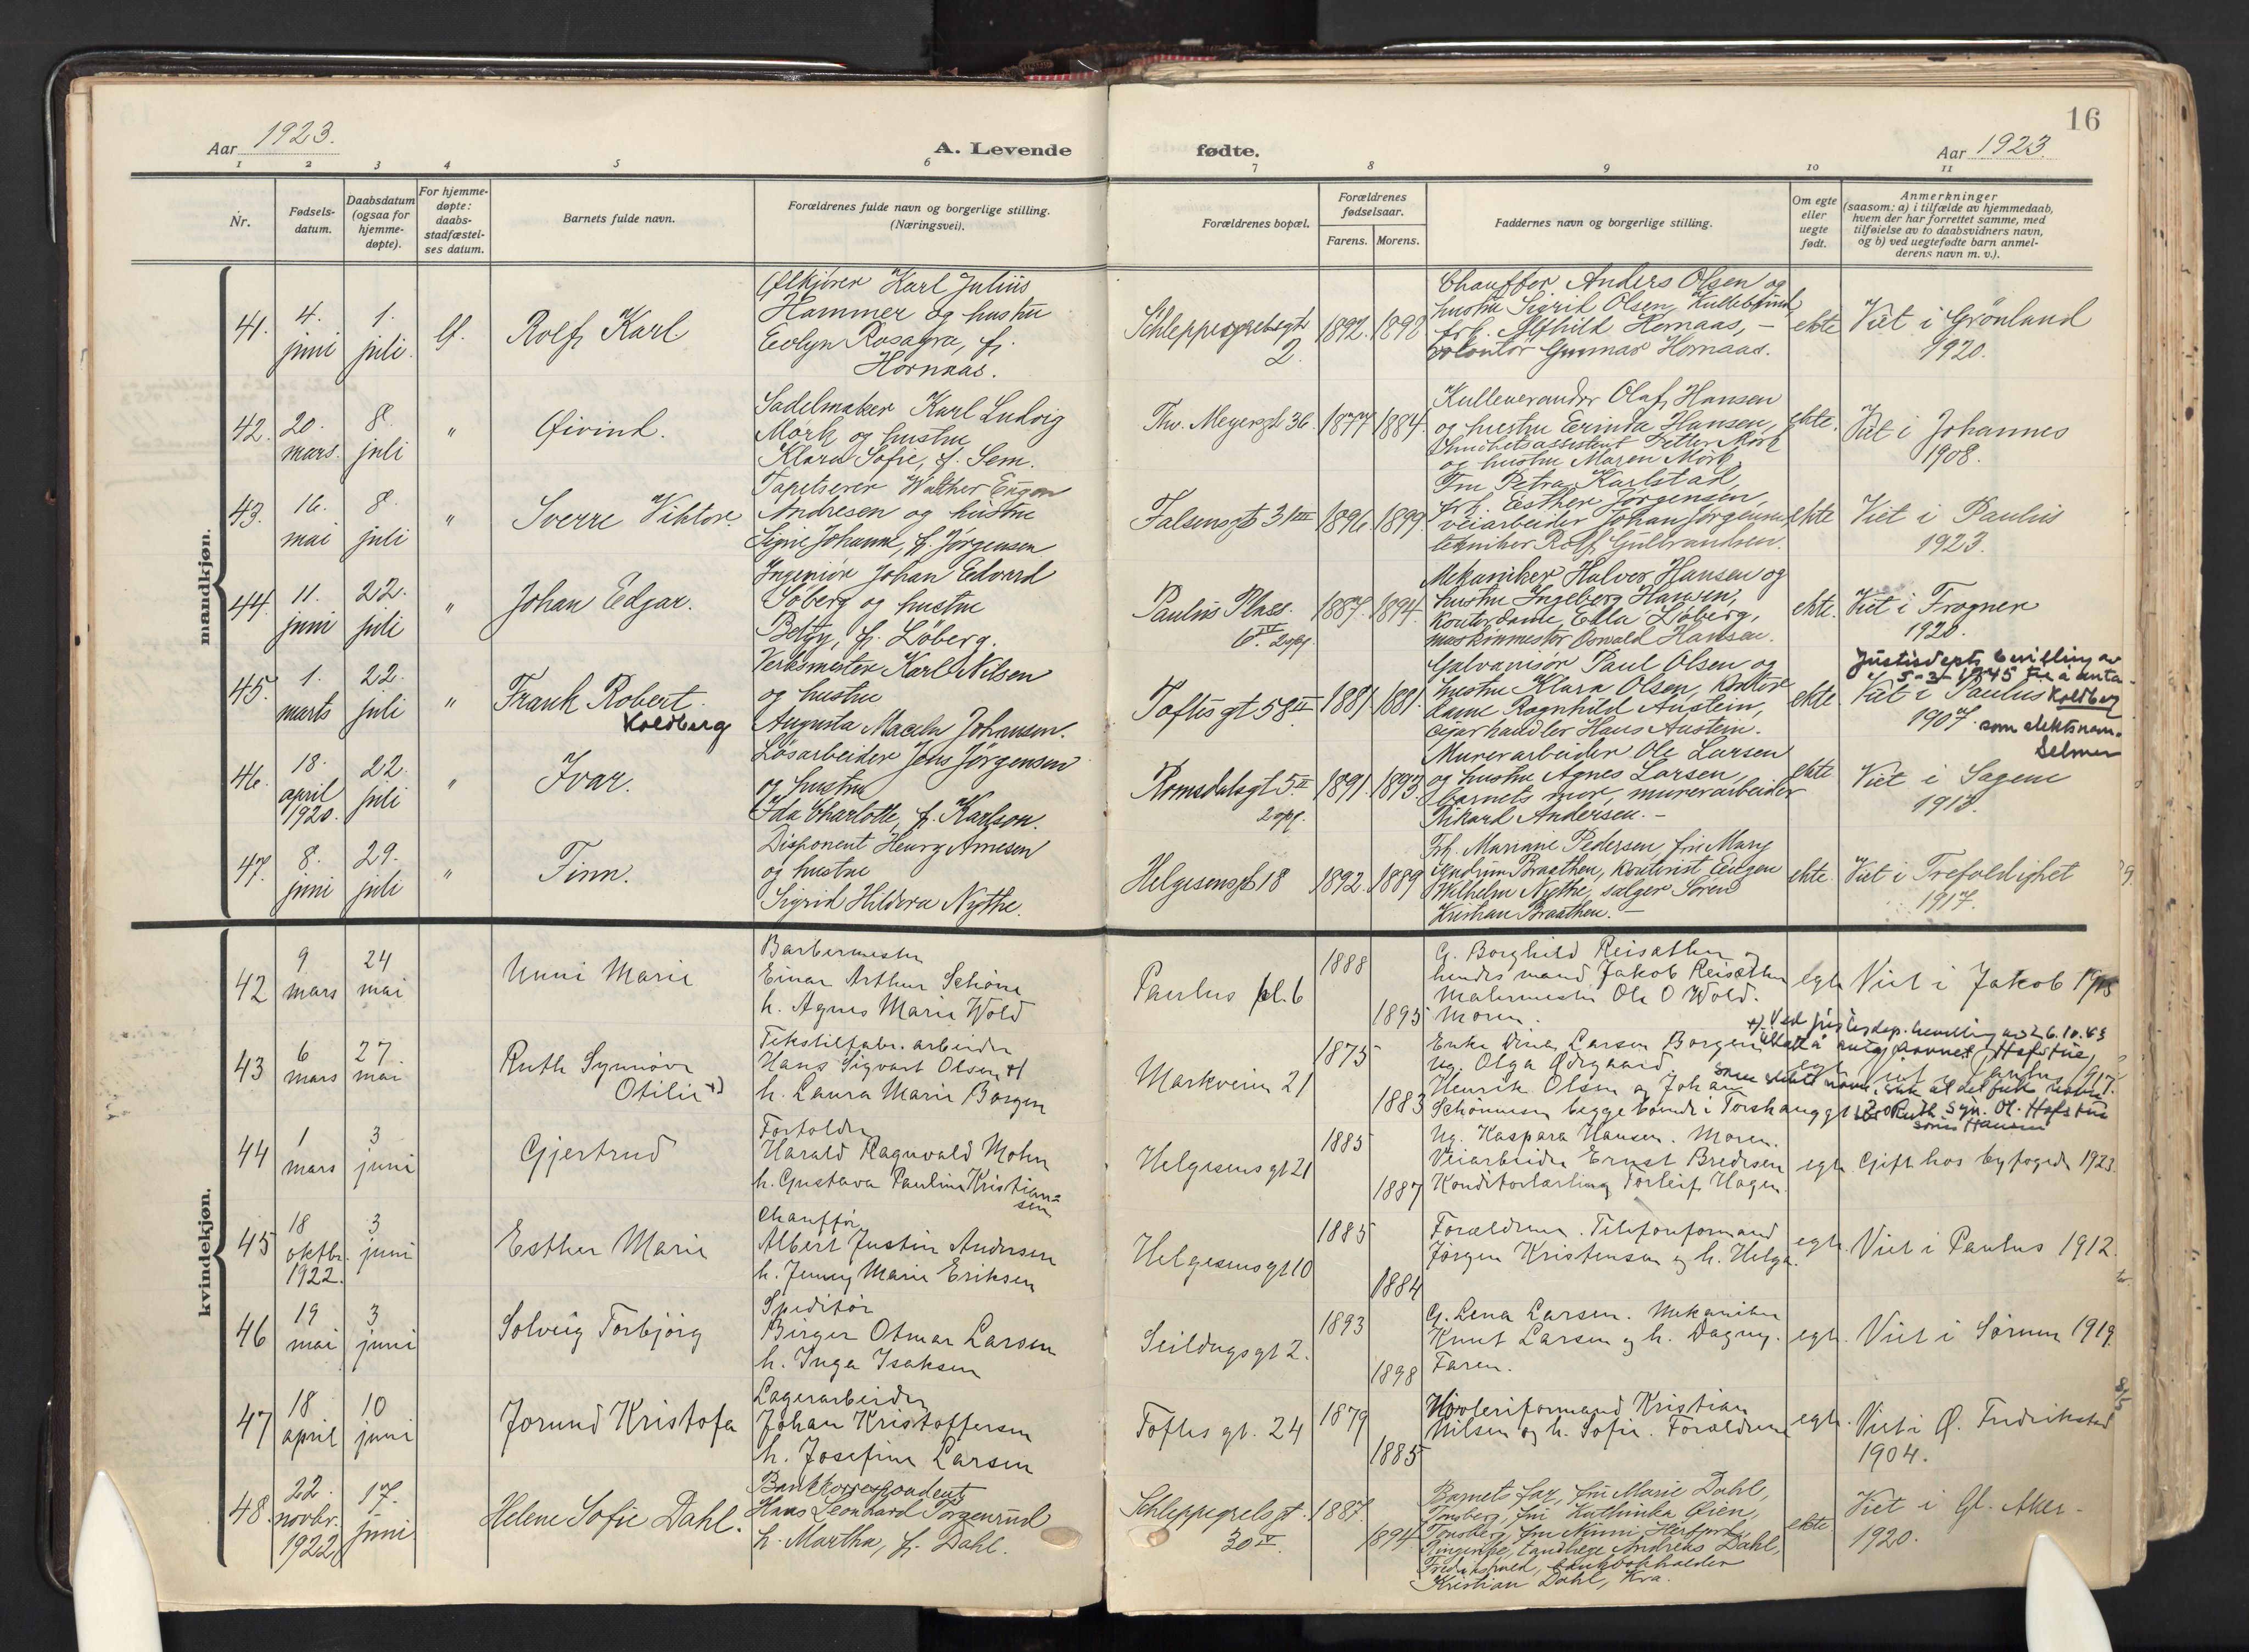 16
Aar 1923.
A. Levende
fødte.
Aar 1923.
1 2 3 4 5 6 7 8 9 10 11
Nr.
Fødsels-
datum.
Daabsdatum
(ogsaa for
hjemme-
døpte).
For hjemme-
døpte:
daabs-
stadfæstel-
ses datum.
Barnets fulde navn.
Forældrenes fulde navn og borgerlige stilling.
(Næringsvei).
Forældrenes bopæl.
Forældrenes
fødselsaar.
Farens. Morens.
Faddernes navn og borgerlige stilling.
Om egte
eller
uegte
født.
Anmerkninger
(saasom: a) i tilfælde av hjemmedaab,
hvem der har forrettet samme, med
tilføielse av to daabsvidners navn,
og b) ved uegtefødte barn anmel-
derens navn m. v.).
mandkjøn.
41.
4.
juni
1.
juli.
Rolf Karl
Ølkjører Karl Julius
Hammer og hustru
Evlyn Rosagra, f.
Hornaas.
Schleppegrelsgt
2.
1892. 1898
Chauffør Anders Olsen og
hustru Sigrid Olsen,
frk. Alfhild Hornaas, –
volontør Gunnar Hornaas.
ekte
Viet i Grønland
1920.
42.
20.
mars.
8.
juli
"
Øivind.
Sadelmaker Karl Ludvig
Mørk og hustru
Klara Sofie, f. Sem.
Thv. Meyersgt 36.
1877 1884.
Kulleverandør Olaf Hansen
og hustru Hansen,
Petter Mørk
og hustru Maren Mørk
ekte.
Viet i Johannes
1908.
43.
16.
mai
8.
juli
"
Sverre Viktor.
Tapetserer Walther Eugen
Andresen og hustru
Signe Johanne, f. Jørgensen
Falsensgt 31 III
1896 1899
Fru Petra Karlstad,
frk. Esther Jørgensen,
veiarbeider Johan Jørgensen,
tekniker Rolf Gulbrandsen.
ekte
Viet i Paulus
1923.
44.
11.
juni
22.
juli
"
Johan Edgar.
Ingeniør Johan Edvard
Soberg og hustru
Betsy, f. Løberg.
Paulus Plass.
6 IV 2 opg.
1887. 1894.
Mekaniker Halvor Hansen og
hustru Ingeborg Hansen,
Kontordame Ella Løberg,
maskinmester Osvald Hansen.
ekte.
Viet i Frogner
1920.
45.
1.
marts
22.
juli
"
Frank Robert.
Koldberg
Verksmester Karl Nilsen
og hustru
Augusta Magda Johansen.
Toftesgt 58 II
1881 1881.
Galvanisør Paul Olsen og
hustru Klara Olsen, kontor
dame Ragnhild Austein,
cigarhandler Hans Austein.
ekte.
Justisdepts bevilling av
5-3-1945 til å anta
Viet i Paulus Koldberg
1907. som slektsnavn.
Selmer
46.
18.
april
1920.
22.
juli
"
Ivar.
Løsarbeider Jens Jørgensen
og hustru
Ida Charlotte, f. Karlson.
Romsdalsgt 5 II
2 opg.
1891. 1893.
Murerarbeider Ole Larsen
og hustru Agnes Larsen,
barnets mor, murerarbeider
Rikard Andersen. –
ekte
Viet i Sagene
1918.
47.
8.
juni
29.
juli
"
Finn.
Disponent Henry Arnesen
og hustru
Sigrid Hildera Nythe.
Helgesensgt 18
1892. 1889
Frk. Mariane Pedersen, fru Mary
Gudrun Braathen, kontorist Eugen
Wilhelm Nythe, sælger Søren
Kristian Braathen. –
ekte.
Viet i Trefoldighet
1917.
kvindekjøn.
42
9
mars
24
mai
Unni Marie
Barbermester
Einar Arthur Schøne
h. Agnes Marie Wold
Paulus pl. 6
1888
1895
G. Borghild Reisæther og
hendes mand Jakob Reisæther
Malermester Ole O Wold.
Moren.
egte
Viet i Jakob 1915
43
6
mars
27.
mai
Ruth Synnøve
Otilie +)
Tekstilfabr. arbeider
Hans Sigvart Olsen +)
h. Laura Marie Borgen
Markveien 21
1875
1883
Enke Dina Larsen Borgen
Ug. Olga Ødegaard
Henrik Olsen og Johan
Schønnesen begge boende i Torshauggt
egte
+) Ved justisdep. bevilling av 26.10.43
Hofstue,
Viet i Paulus 1917.
Ruth Syn. Ot. Hofstue
44
1
mars
3
juni
Gjertrud
Fortolder
Harald Ragnvald Mohn
h. Gustava Pauline Kristian-
sen
Helgesens gt 21
1885
1887
Ug. Kaspara Hansen. Moren.
Veiarbeider Ernst Bredesen
Konditorlærling Torleif Hagen.
egte.
Gift hos byfogden 1923.
45
18
oktbr.
1922.
3
juni
Esther Marie
Chauffør
Albert Justin Andersen
h. Jenny Marie Eriksen
Helgesens gt 10
1885
1884
Forældrene. Telefonformand
Jørgen Kristensen og h. Helga.
egte.
Viet i Paulus 1912.
46
19
mai
3
juni
Solveig Torbjørg
Speditør
Birger Otmar Larsen
h. Inga Isaksen
Seildugsgt 2.
1893
1898
G. Lena Larsen. Mekaniker
Knut Larsen og h. Dagny.
Faren.
egte.
Viet i Sørum 1919.
47
18
april
10
juni
Jorund Kristofa
Lagerarbeider
Johan Kristoffersen
h. Josefine Larsen
Toftes gt. 24
1879
1885
Høvleriformand Kristian
Nilsen og h. Sofie. Forældrene
egte.
Viet i Ø. Fredrikstad
1904.
48.
22.
novbr.
1922
17.
juni
Helene Sofie Dahl.
Bankkorrespondent
Hans Leonhard Torgersrud
h. Martha, f. Dahl.
Schleppegrelsgt.
30 IV.
1887.
1894.
Barnets far, fru Marie Dahl,
Tønsberg, fru Kathinka Øien,
Tønsberg, fru
tandlæge Andreas Dahl,
bankbokholder
Kristian Dahl, Kra.
ekte
Viet i Gl. Aker –
1920.